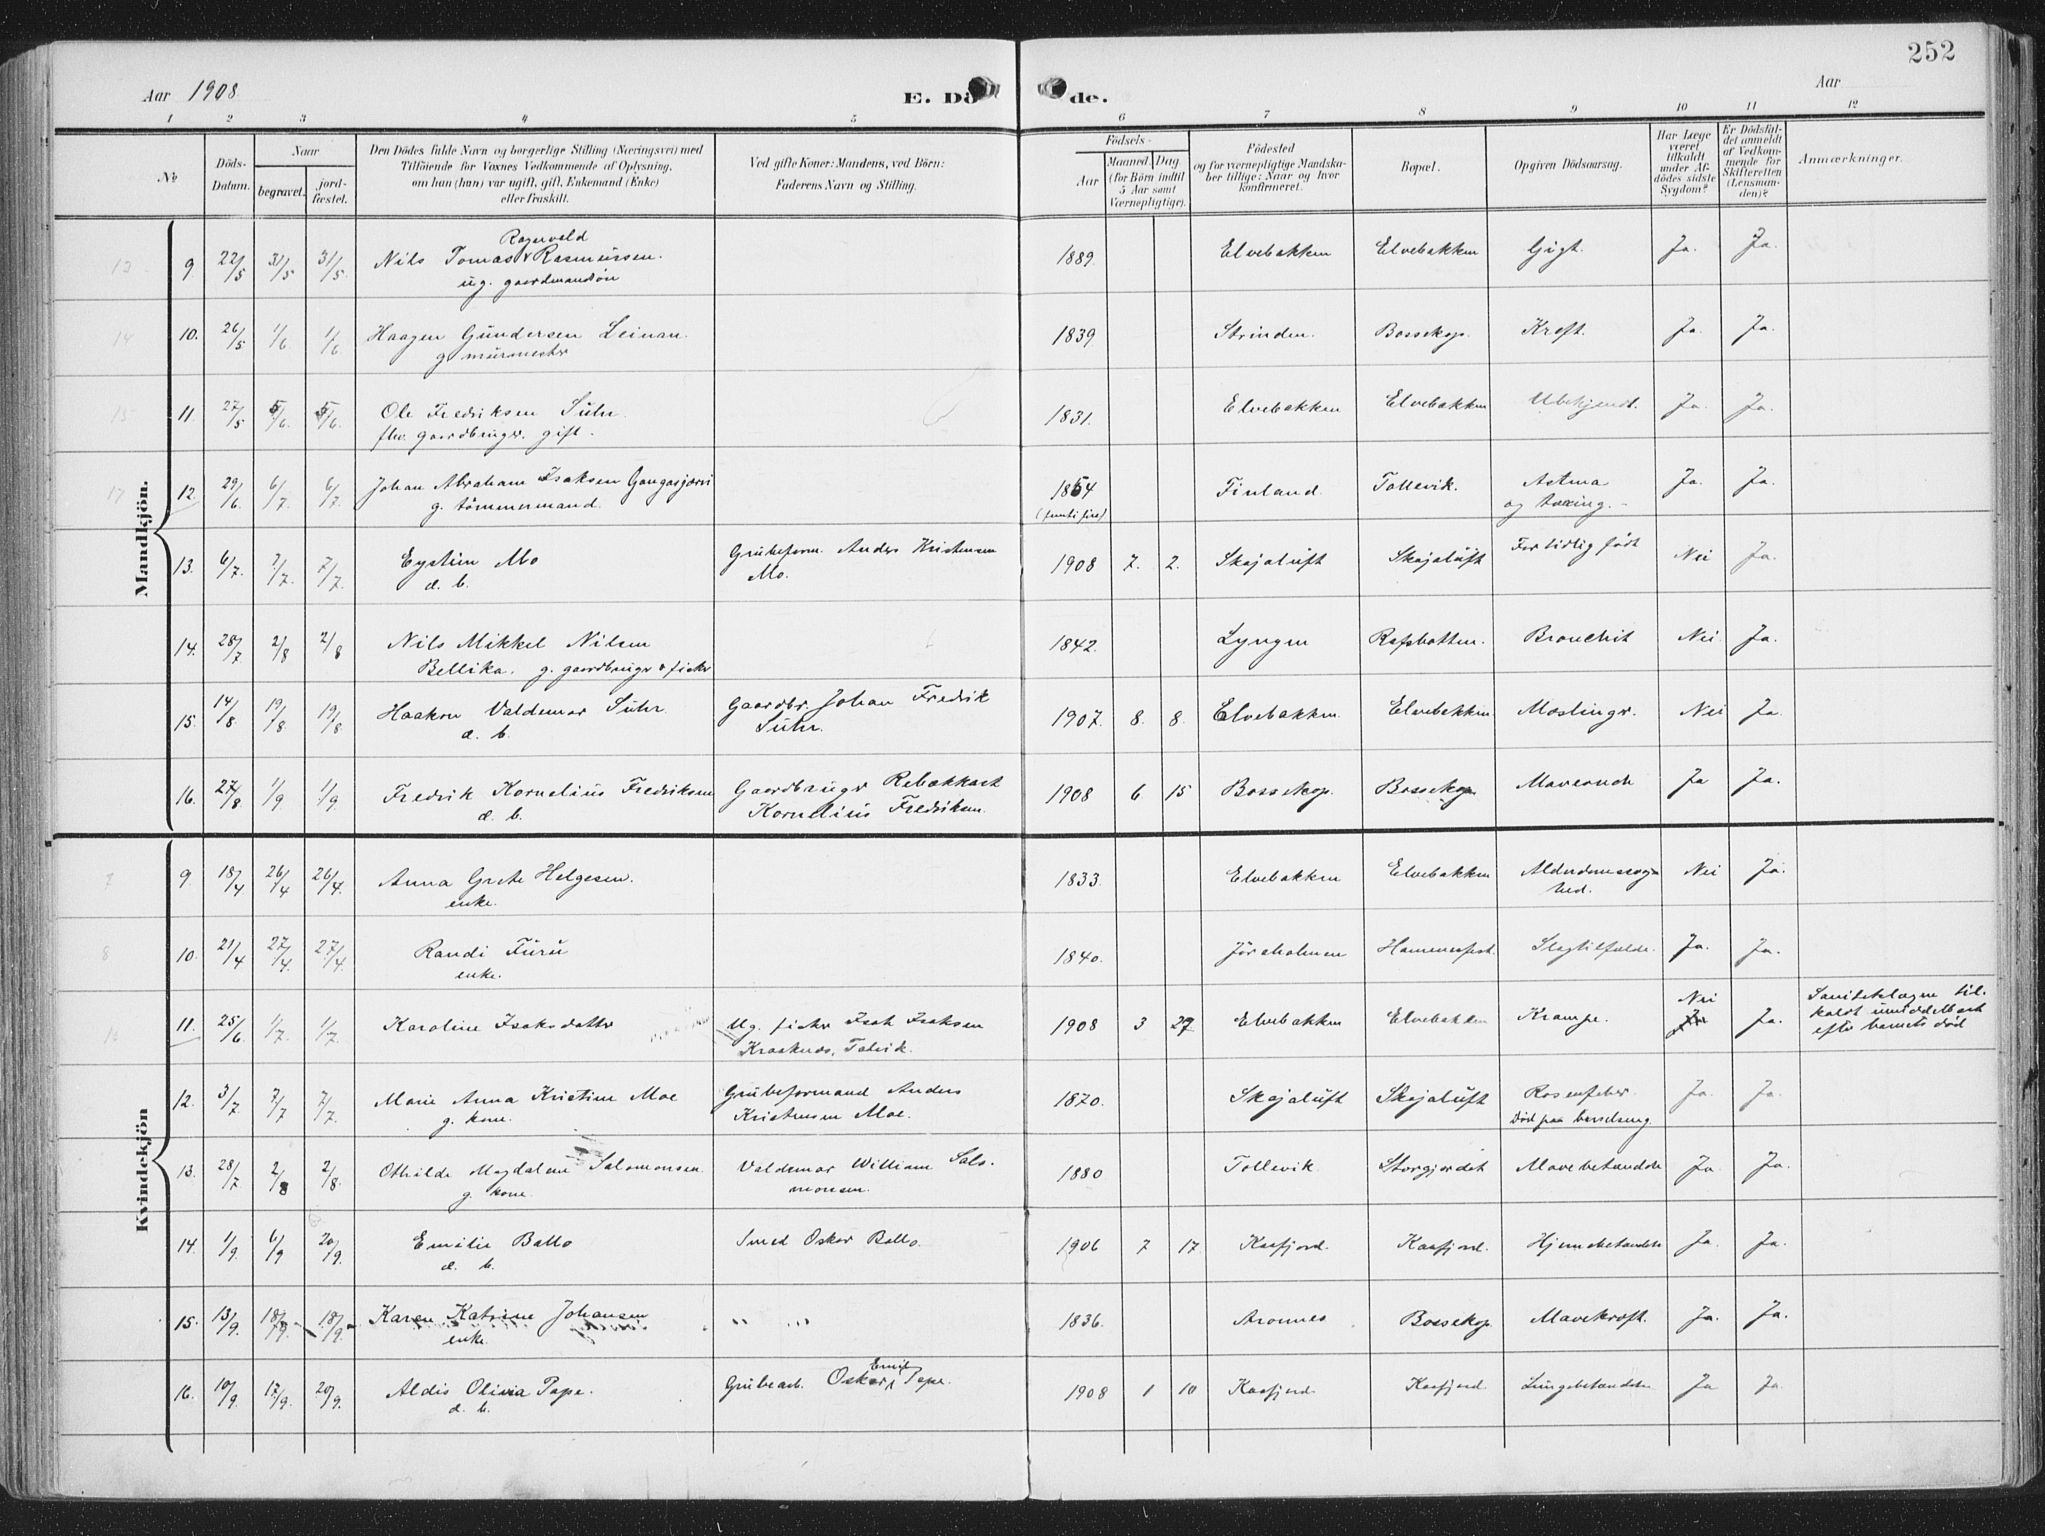 252
Aar 1908
E. Dö de.
Aar
1 2 3 4 5 6 7 8 9 10 11 12
No
Döds-Datum.
Naar
begravet.
jord-fæstet.
Den Dödes fulde Navn og borgerlige Stilling (Næringsvei) med
Tilföiende for Voxnes Vedkommende af Oplysning,
om han (hun) var ugift, gift, Enkemand (Enke)
eller fraskilt.
Ved gifte Koner: Mandens, ved Börn:
Faderens Navn og Stilling.
Födsels-
Aar
Maaned Dag
(for Börn indtil
5 Aar samt
Værnepligtige).
Födested
og for værnepligtige Mandska-
ber tillige: Naar og hvor
konfirmeret.
Bopæl.
Opgiven Dödsaarsag.
Har Læge
været
tilkaldt
under Af-
dödes sidste
Sygdom?
Er Dödsfal-
det anmeldt
af Vedkom-
mende for
Skifteretten
(Lensman-
den)?
Anmærkninger.
Mandkjön.
13 9 22/5 31/5 31/5 Nils Tomas Ragnvald Rasmussen. 1889. Elvebakken Elvebakken Gigt. Ja. Ja.
ug. gaardmandsøn
14 10. 26/5 1/6 1/6 Haagen Gundersen Leinan. 1839 Strinden. Bossekop. Kreft. Ja. Ja.
g. murmester
15 11. 27/5 5/6 5/6 Ole Fredriksen Suhr. 1831. Elvebakken Elvebakken Ubekjendt. Ja. Ja.
fhv. gaardbruger. gift.
17 12. 29/6 6/7 6/7 Johan Abraham Isaksen Gangasjærvi 1854 Finland. Tollevik. Astma Ja. Ja.
g. tömmermand. (femti fire) og tæring.
13. 6/7 7/7 7/7 Eystein Mo Grubeform. Anders Kristensen 1908 7. 2. Skajaluft Skajaluft For tidlig født Nei Ja.
d. b. Mo.
14. 28/7 2/8 2/8 Nils Mikkel Nilsen 1842. Lyngen Rafsbotten. Bronchit Nei Ja.
Bellika. g. gaardbruger & fisker
15. 14/8 19/8 19/8 Haakon Valdemar Suhr. Gaardbr Johan Fredrik 1907. 8. 8. Elvebakken Elvebakken Mæslinger. Nei Ja.
d. b. Suhr.
16. 27/8 1/9 1/9 Fredrik Kornelius Fredriksen Gaardbruger Rebækkast 1908 6 15 Bossekop. Bossekop Maveonde Ja Ja.
d. b. Kornelius Fredriksen.
Kvindekjön
7 9. 18/4 26/4 26/4. Anna Grete Helgesen. 1833. Elvebakken Elvebakken Alderdomssvag- Nei Ja.
enke. hed.
8 10. 21/4 27/4. 27/4. Randi Furu 1840. Jöraholmen Hammerfest. Slagtilfælde. Ja. Ja.
enke.
11. 25/6 1/7. 1/7. Karoline Isaksdatter Ug. fisker Isak Isaksen 1908 3 27 Elvebakken Elvebakken Krampe. Nei Ja. Sanitetslægne til-
Kraakenes, Talvik. Ja kaldt umiddelbart
efter barnets död
12. 3/7. 7/7 7/7. Marie Anna Kristine Moe Grubeformand Anders 1870. Skajaluft Skajaluft Rosenfeber Ja. Ja.
g. kone. Kristensen Moe. Död paa barselseng.
13. 28/7 2/8 2/8. Othilde Magdalene Salomonsen Valdemar William Salo- 1880 Tollevik Storgjerdet Mavebetændelse Ja. Ja.
g. kone. monsen.
14. 1/9. 6/9 20/9. Emilie Ballo Smed Oskar Ballo. 1906 7 17. Kaafjord. Kaafjord. Hjernebetændelse Ja. Ja.
d. b.
15. 13/9. 18/9. 18/9. Karen Katrine Johansen " " 1836. Aronnes Bossekop. Mavekræft. Ja. Ja.
enke.
16. 10/9. 17/9. 20/9. Aldis Olivia Pape. Grubearb. Oskar Emil Pape. 1908 1 10 Kaafjord. Kaafjord. Lungebetændelse Ja Ja.
d. b.